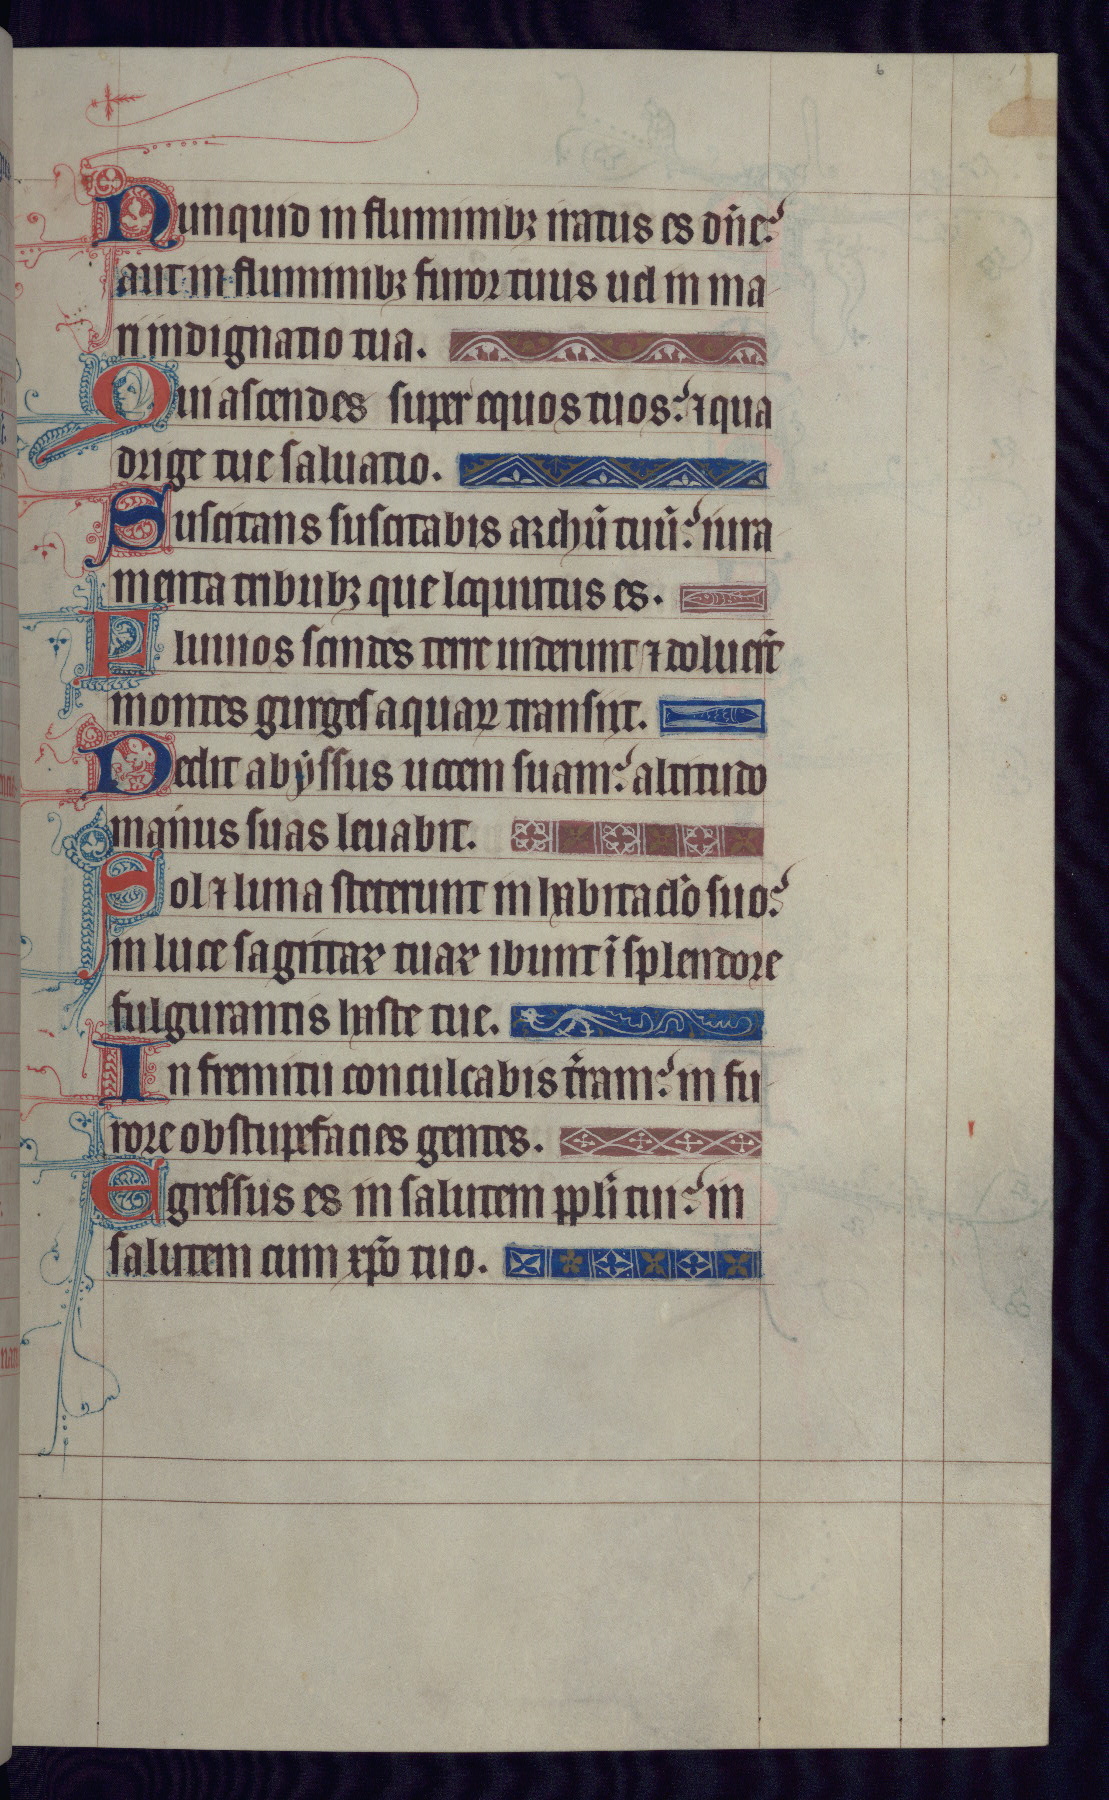 Nunquid in fluminibꝫ iratus es dñe?
aut in fluminibꝫ furor tuus uel in ma
ri indignatio tua.
Qui ascendes super equos tuos? ⁊ qua
drige tue saluatio.
Suscitans suscitabis archũ tuũ? iura
menta tribubꝫ que loquutus es.
Fluuios scindes terre uiderunt ⁊ doluer̃t
montes gurges aquaꝝ transiit.
Dedit abyssus uocem suam? altitudo
manus suas leuabit.
Sol ⁊ luna steterunt in habitacl̃o suo?
in luce sagittaꝝ tuaꝝ ibunt ĩ splendore
fulgurantis haste tue.
In fremitu conculcabis t̃ram? in fu
rore obstupefacies gentes.
Egressus es in salutem ppl̃i tui? in
salutem cum xp̃o tuo.
6